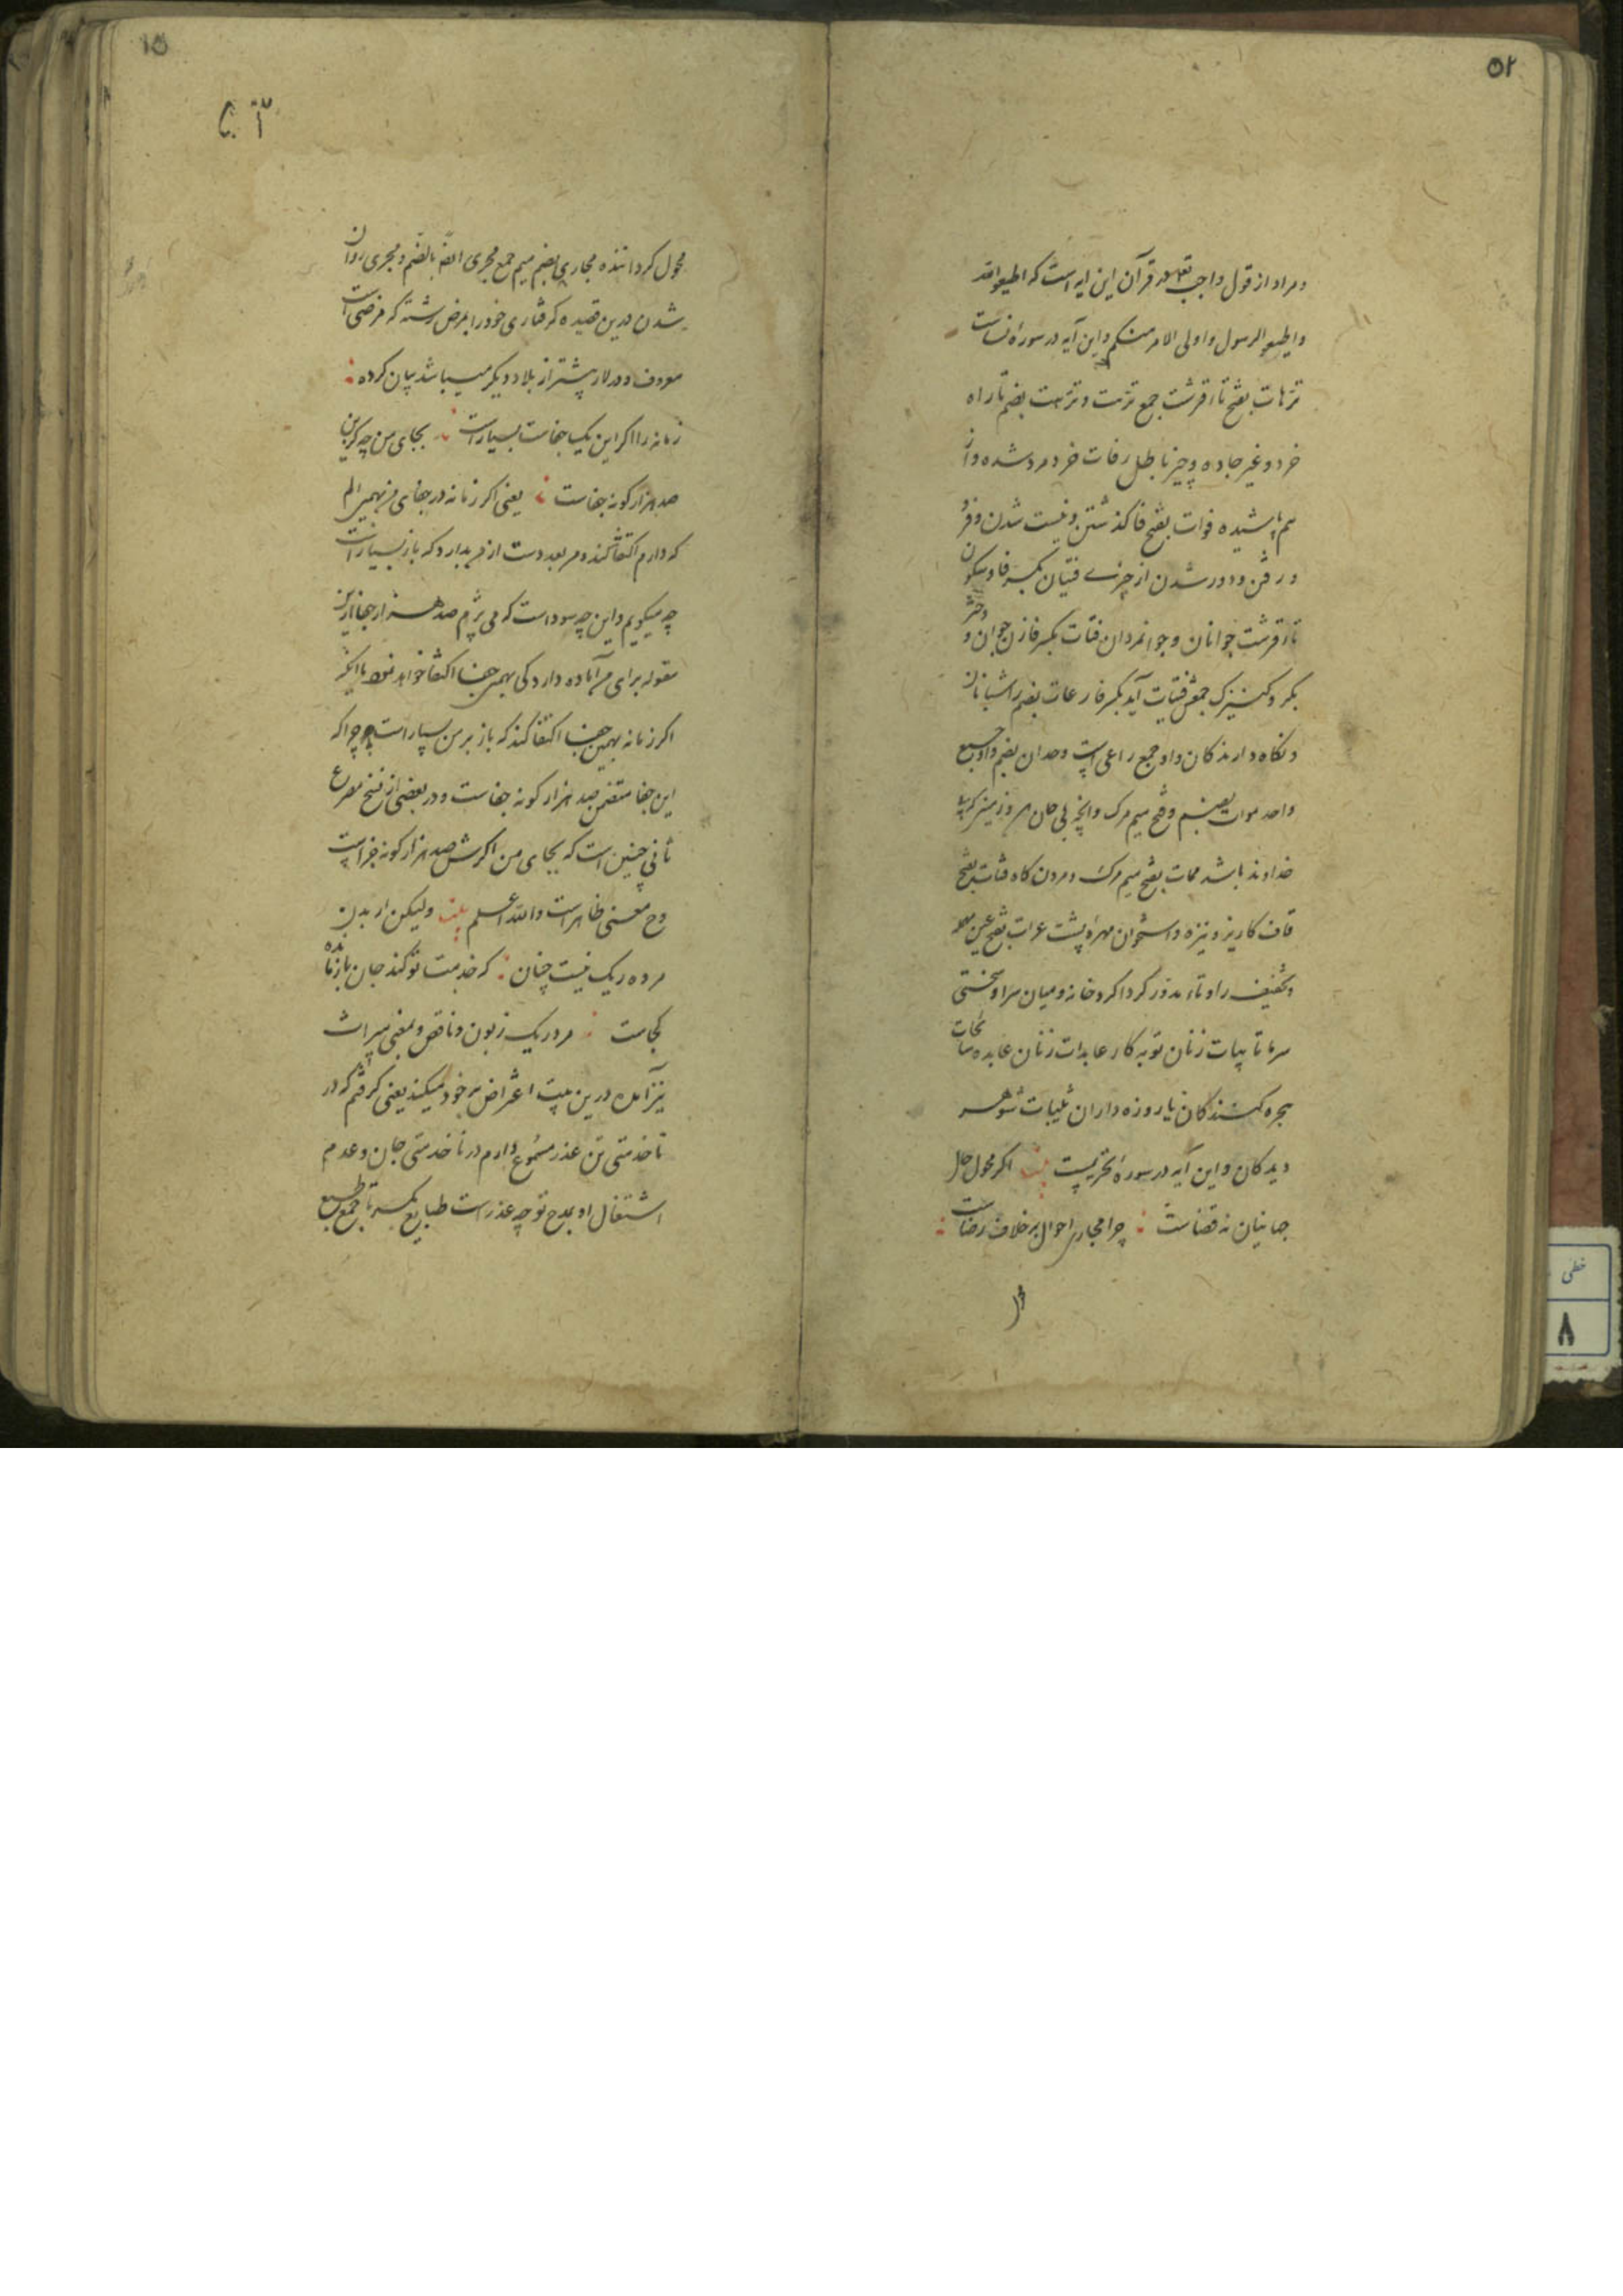 ۵۲
و مراد از قول واجب تعالی در قرآن این آیه است که اطیعوالله
واطیعوالرسول و اولی الامر منکم و این آیه در سوره نساست
ترهات بضم تاء قرشت جمع ترهت و ترهت بضم تا راه
خرد و غیر جاده و چیز باطل رفات خرد مرد شده و از
هم پاشیده فوات بفتح فا گذشتن و نیست شدن و فرو
و رفتن و دور شدن از چیزی فتیان بکسر فا و سکون
تاء قرشت جوانان و جوانمردان فتات بکسر فا زن جوان و دختر
بکر و کنیزک جمعش فتیات آید بکسر فا رعات بضم را شبانان
و نگاه دارندگان و او جمع راعی است وحدان بضم واو جمع
واحد موات بضم و فتح میم مرگ و آنچه بی جان بود و زمینی که بی
خداوند باشد ممات بفتح میم مرگ و مردن گاه قنات بفتح
قاف کاریز و نیزه و استخوان مهره پشت عرات بفتح عین مهمله
و تخفیف را و تاء مدور گرداگرد خانه و میان سرا و سختی
سرما تایبات زنان توبه کار عابدات زنان عابده سایحات
هجره کنندگان یا روزه داران ثیبات شوهر
دیدگان و این آیه در سوره تحریمست بیت اگر محول حال
جهانیان نه قضاست : چرا مجاری احوال برخلاف رضاست :
محول
۵۱
۵۲
محول گرداننده مجاری بضم میم جمع مجری ایضا بالضم و مجری روان
شدن درین قصیده گرفتاری خود را بمرض رشته که مرضی است
معروف و در لار بیشتر از بلاد دیگر میباشد بیان کرده :
زمانه را اگر این یک جفاست بسیار است : بجای من چه کزین
صد هزار گونه جفاست : یعنی اگر زمانه در جفای من بهمین الم
که دارم اکتفا کند و من بعد دست از من بدارد که باز بسیار است
چه میگویم و این چه سود است که می پزم صد هزار جفا ازین
مقوله برای من آماده دارد کی بهمین جفا اکتفا خواهد نمود یا آنکه
اگر زمانه بهمین جفا اکتفا کند که باز بر من بسیار است چرا که
این جفا متضمن صد هزار گونه جفاست و در بعضی از نسخ مصرع
ثانی چنین است که بجای من اگرش صد هزار گونه جزاست
وح معنی ظاهر است والله اعلم بیت ولیکن ار بدن
مرده ریک نیست چنان : که خدمت تو کند جان بازمانده
کجاست : مرد ریک زبون و ناقص و بمعنی میراث
نیز آمده درین بیت اعتراض بر خود میکند یعنی گرفتم که در
ناخدمتی تن عذر مسموع دارم در ناخدمتی جان و عدم
اشتغال او بمدح تو چه عذر است طبایع بکسر تا جمع طبع
خطی
۸